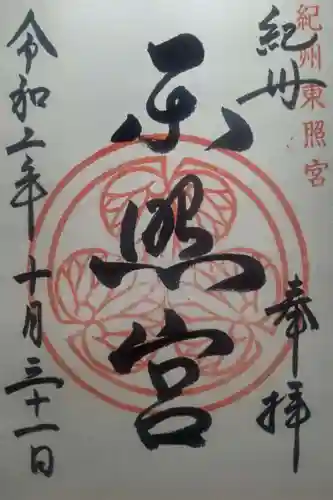 紀州東照宮
紀州
奉拝
东照宮
令和二年十月三十一日